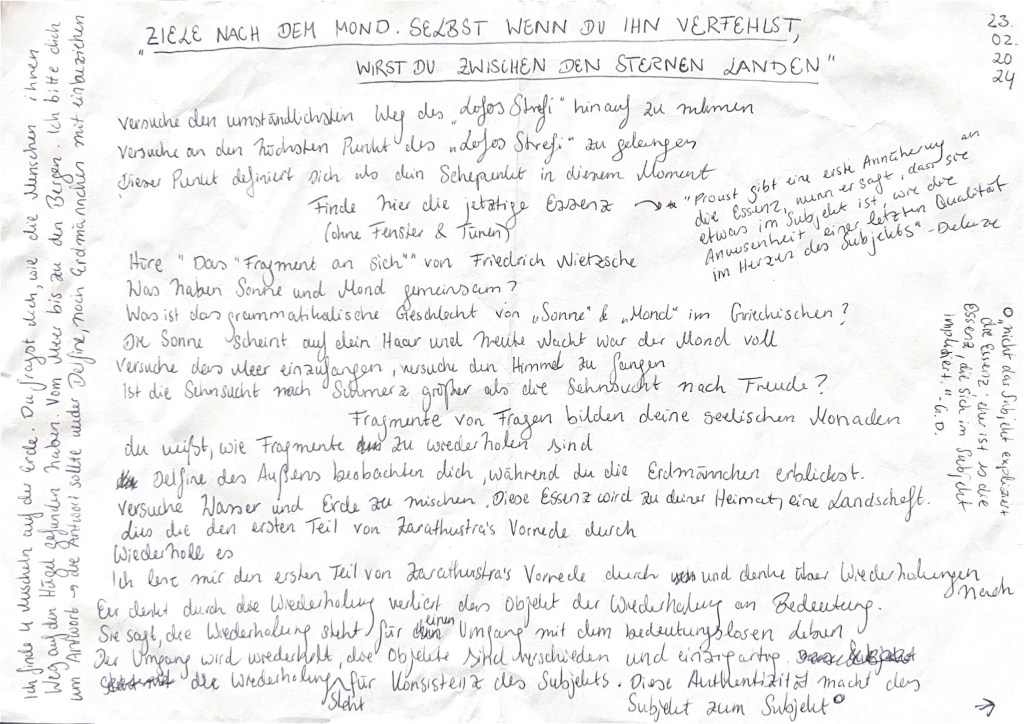 "ZIELE NACH DEM MOND. SELBST WENN DU IHN VERFEHLST,
WIRST DU ZWISCHEN DEN STERNEN LANDEN"
23.
02.
20
24
versuche den umständlichsten Weg des „Lofos Strefi" hinauf zu nehmen
versuche an den höchsten Punkt des „Lofos Strefi" zu gelangen
Dieser Punkt definiert sich als dein Sehepunkt in diesem Moment
Finde hier die jetztige Essenz →*
(ohne Fenster & Türen)
* "Proust gibt eine erste Annäherung an
die Essenz, wenn er sagt, dass sie
etwas im Subjekt ist, wie die
Anwesenheit einer letzten Qualität
im Herzen des Subjekts" - Deleuze
Höre "Das "Fragment an sich"" von Friedrich Nietzsche
Was haben Sonne und Mond gemeinsam?
Was ist das grammatikalische Geschlecht von „Sonne" & „Mond" im Griechischen?
Die Sonne scheint auf dein Haar und heute Nacht war der Mond voll
versuche das Meer einzufangen, versuche den Himmel zu fangen
Ist die Sehnsucht nach Schmerz größer als die Sehnsucht nach Freude?
Fragmente von Fragen bilden deine seelischen Monaden
du weißt, wie Fragmente zu wiederholen sind
Delfine des Außens beobachten dich, während du die Erdmännchen erblickst.
versuche Wasser und Erde zu mischen. Diese Essenz wird zu deiner Heimat, eine Landschaft.
dies die den ersten Teil von Zarathustra's Vorrede durch
Wiederholl es
Ich lese mir den ersten Teil von Zarathustra's Vorrede durch und denke über Wiederholungen
nach
Er denkt durch die Wiederholung verliert das Objekt der Wiederholung an Bedeutung.
Sie sagt, die Wiederholung steht für einen Umgang mit dem bedeutungslosen Leben
Der Umgang wird wiederholt, die Objekte sind verschieden und einzigartig.
die Wiederholung steht für Konsistenz des Subjekts. Diese Authentizität macht das
Subjekt zum Subjekt°
→
° „nicht das Subjekt expliziert
die Essenz, eher ist es die
Essenz, die sich im Subjekt
impliziert." - G.D.
Ich finde 4 Muscheln auf der Erde. Du fragst dich, wie die Menschen ihren
Weg auf den Hügel gefunden haben. Vom Meer bis zu den Bergen. Ich bitte dich
um Antwort → die Antwort sollte weder Delfine, noch Erdmännchen mit einbeziehen